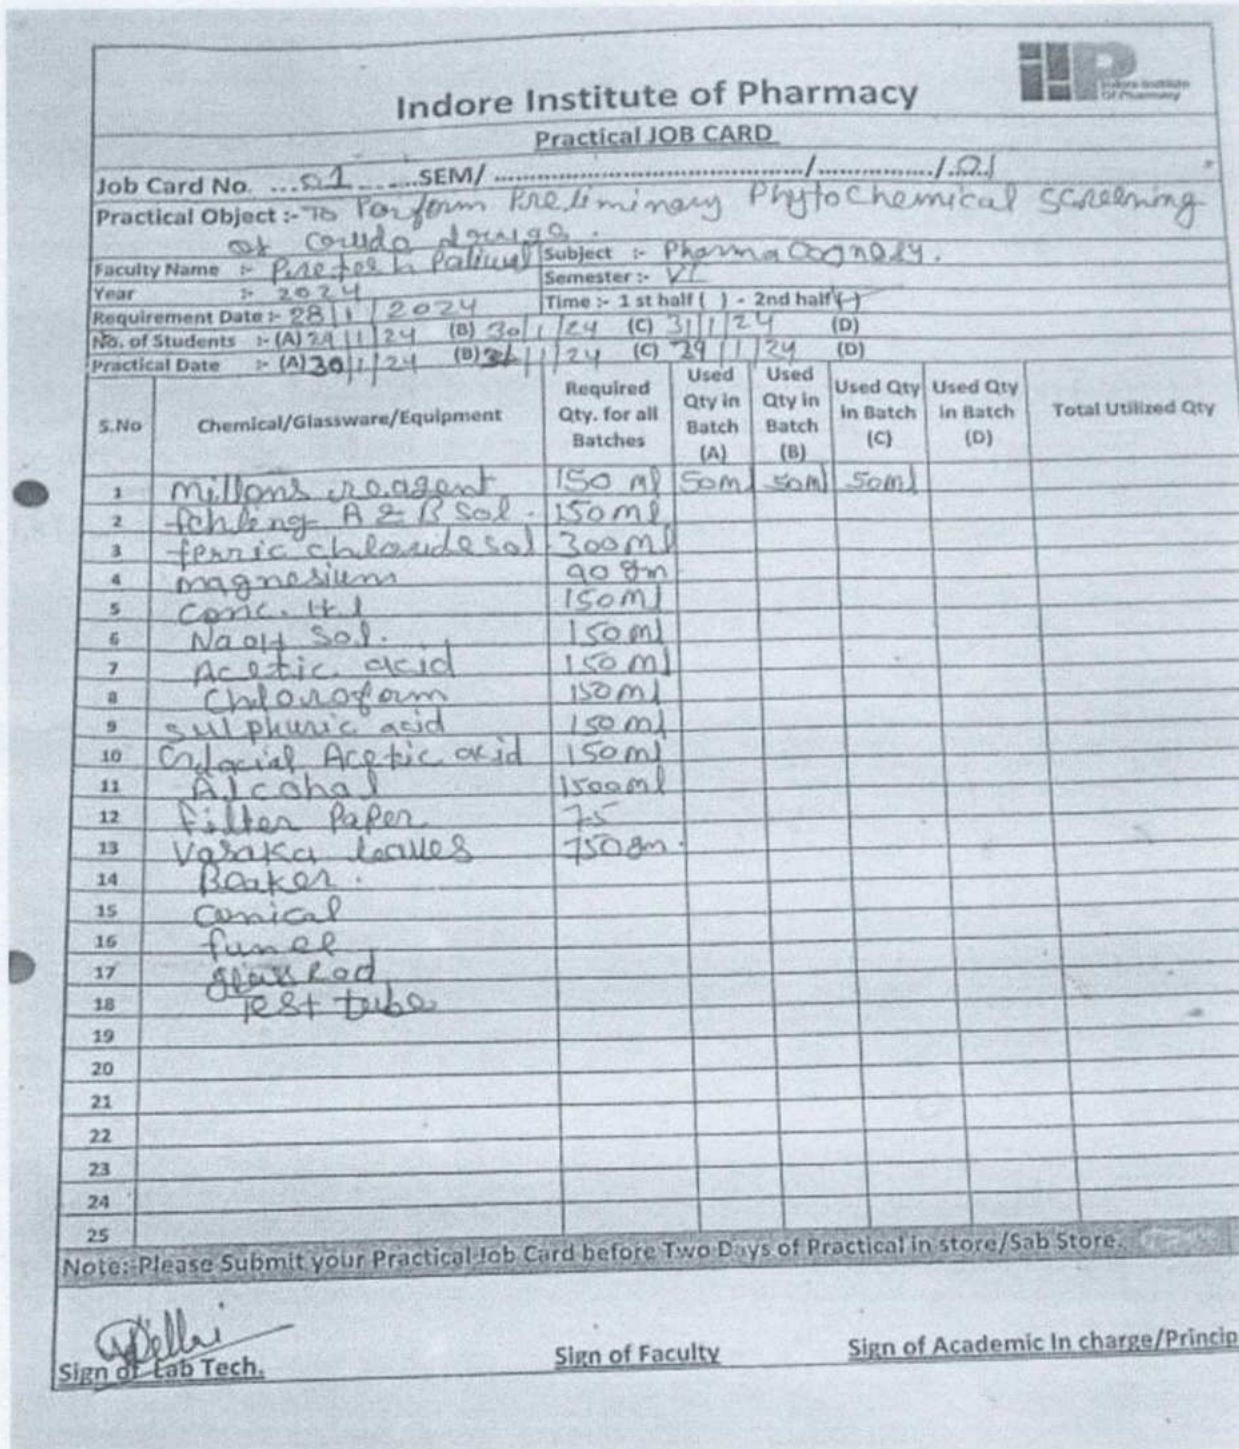 Indore Institute of Pharmacy
Indore Institute
Of Pharmacy
Practical JOB CARD
Job Card No. ...01......SEM/ ............................................./................/.01
Practical Object :- To Perform Preliminary Phytochemical Screening
of
Faculty Name :- Paliwal Subject :- Pharmacognosy.
Year :- 2024 Semester :- VI
Requirement Date :- 28/1/2024 Time :- 1 st half ( ) - 2nd half ( )
No. of Students :- (A) 29/1/24 (B) 30/1/24 (C) 31/1/24 (D)
Practical Date :- (A) 30/1/24 (B) 31/1/24 (C) 29/1/24 (D)
S.No Chemical/Glassware/Equipment Required Qty. for all Batches Used Qty in Batch (A) Used Qty in Batch (B) Used Qty in Batch (C) Used Qty in Batch (D) Total Utilized Qty
1 Millons reagent 150 ml 50ml 50ml 50ml
2 Fehling A & B Sol. 150ml
3 ferric chloride sol 300ml
4 magnesium 90 gm
5 Conc. Hcl 150ml
6 NaoH Sol. 150ml
7 Acetic acid 150ml
8 Chloroform 150ml
9 sulphuric acid 150ml
10 Glacial Acetic acid 150ml
11 Alcohal 1500ml
12 Filter Paper 75
13 Vasaka leaves 750gm.
14 Beaker.
15 Conical
16 funel
17 glass Rod
18 Test tube
19
20
21
22
23
24
25
Note:-Please Submit your Practical Job Card before Two Days of Practical in store/Sab Store.
Sign of Lab Tech. Sign of Faculty Sign of Academic In charge/Princip